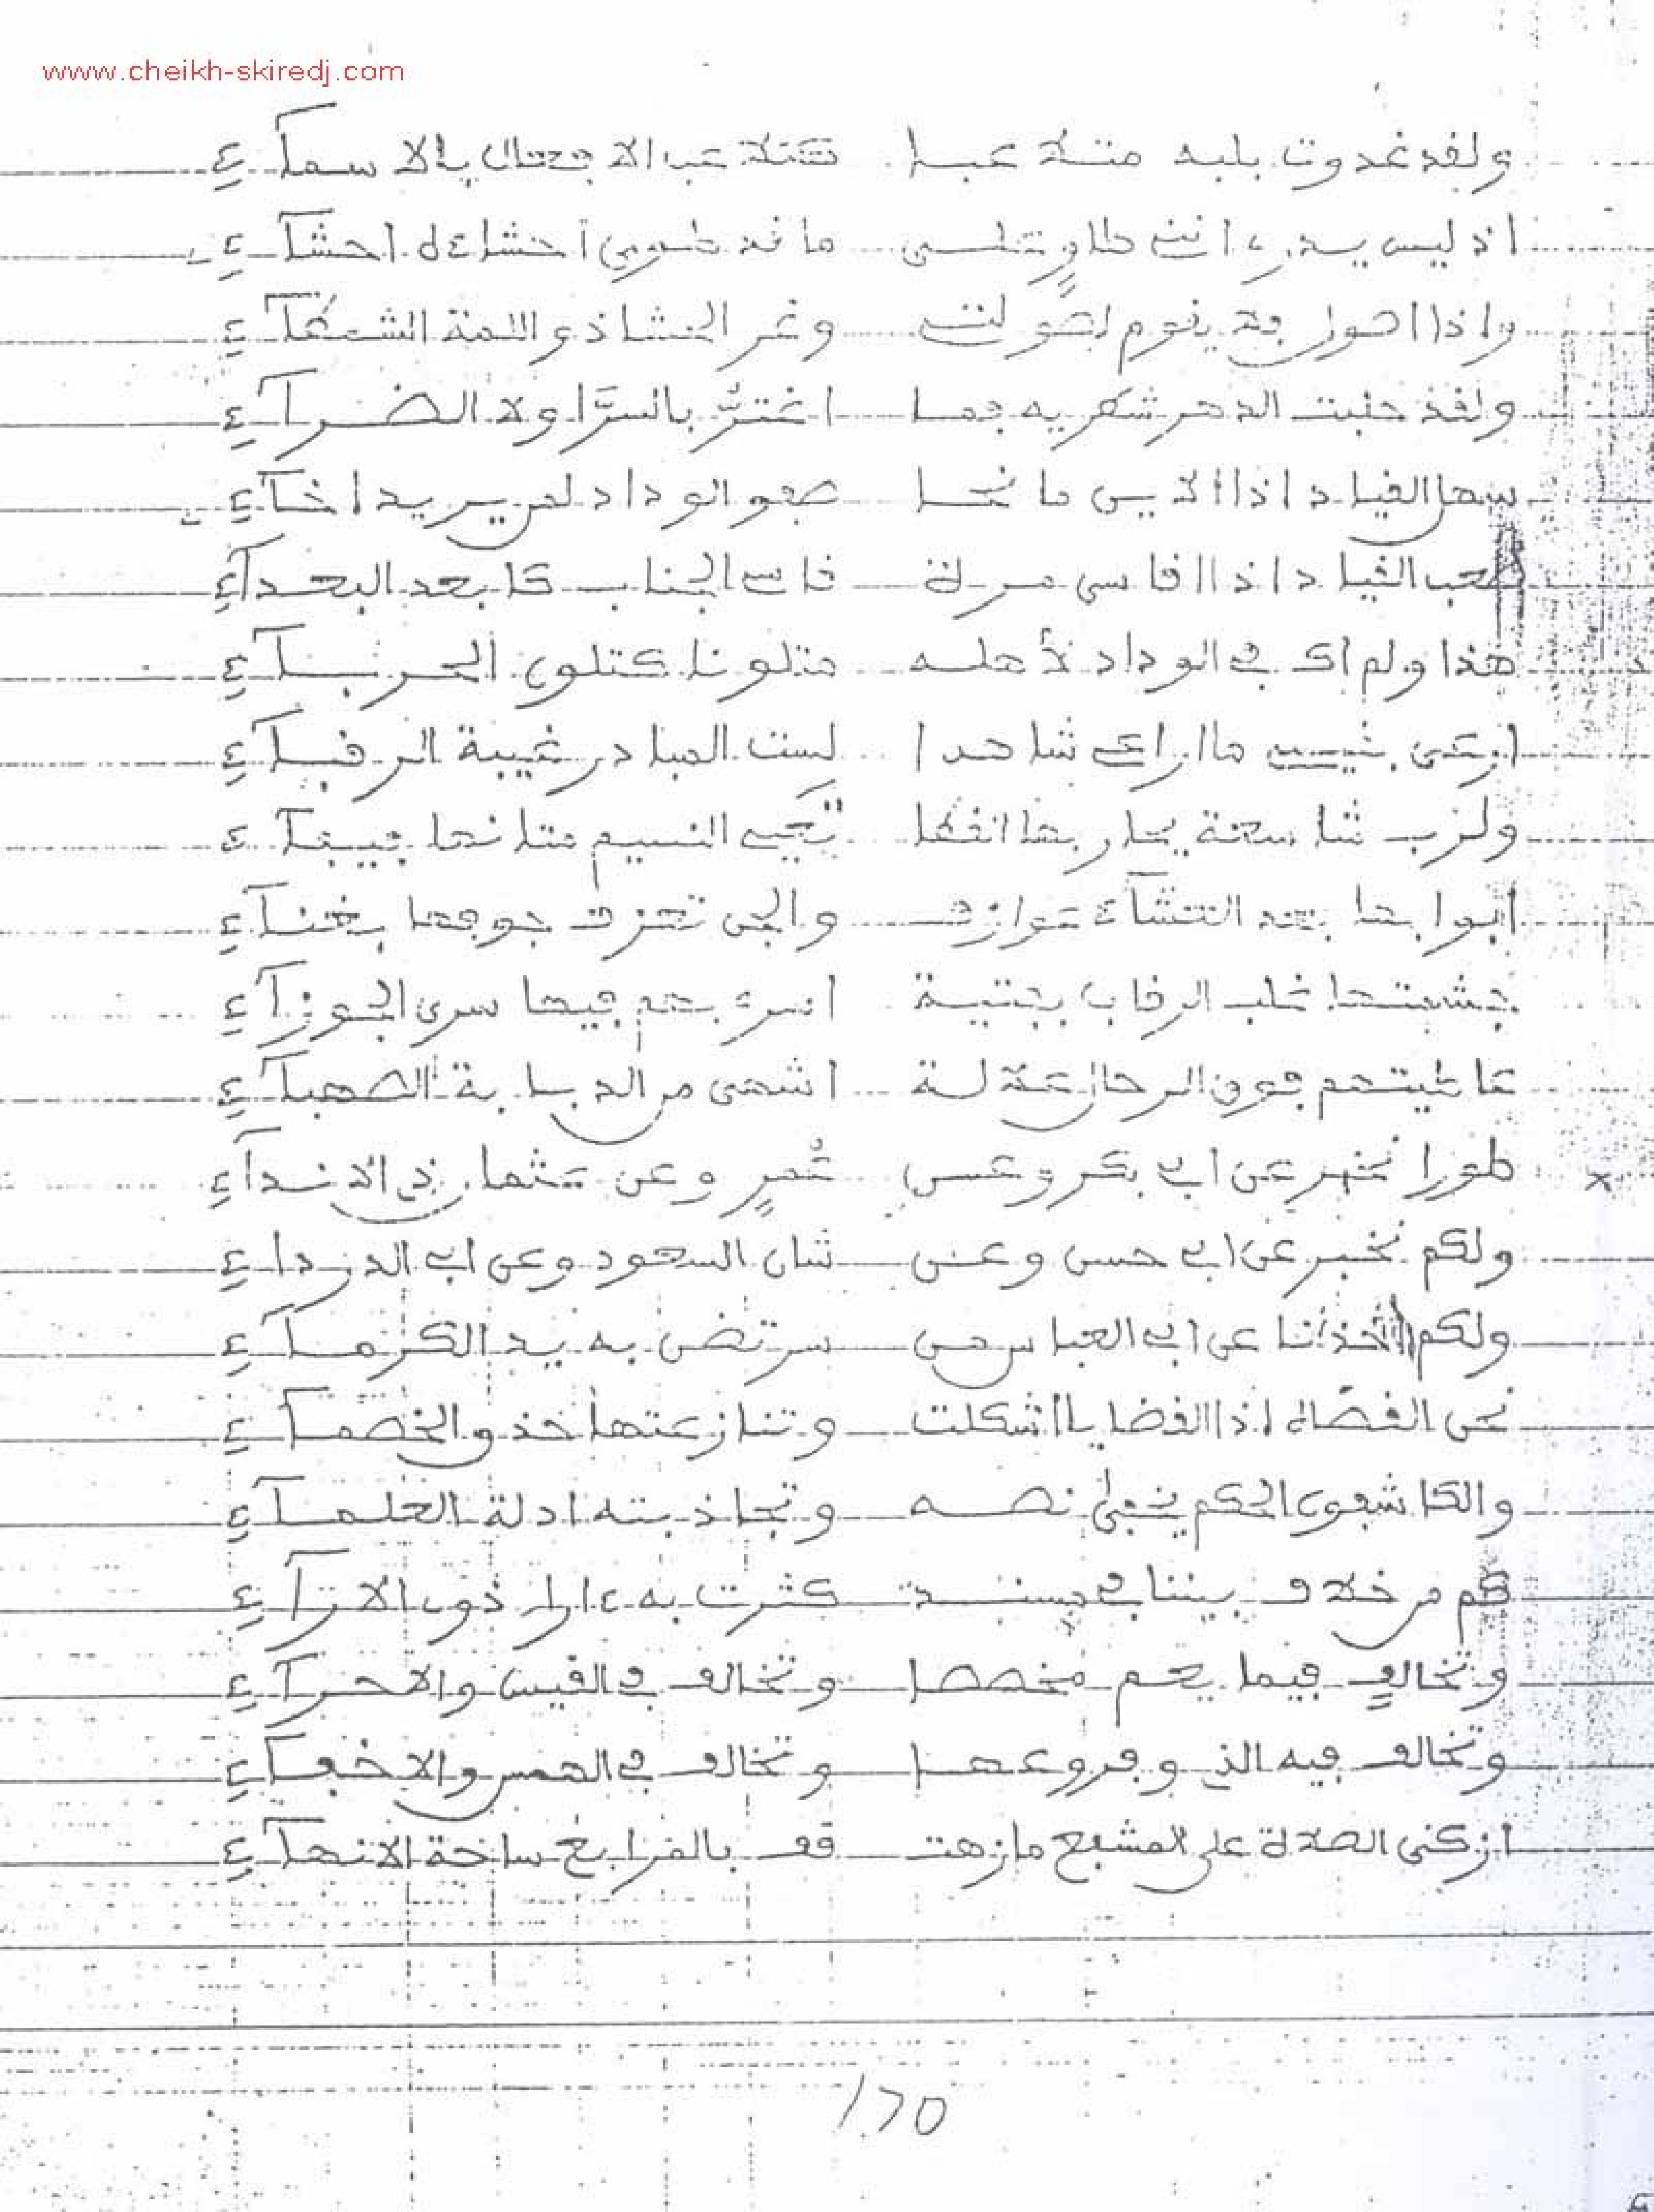 www.cheikh-skiredj.com
ولقد غدوت بلبه متلاعبا تلاعب الافعال بالاسمآء
اذ ليس يدرى انني طاو على ما قد طوى احشاءه احشآء
واذا اقول فد يقوم لصولتى وغر الحشا ذو اللمة الشمطآء
ولقد حلبت الدهر شطريه فما اغتر بالسرا ولا الضرآء
سهل القياد اذا الانيس ما نحا صفو الوداد لمن يريد اخآء
صعب القياد اذا اقاسى مرة قاسى الجناب كابعد البعدآء
هذا ولم اك في الوداد لأهله متلونا كتلون الحربآء
ارعى بغيب ما اراعى شاهدا لست المبادر غيبة الرقبآء
ولرب شاسعة يحار بها القطا تحيى النسيم متانها فيفآء
ابوابها بعد العشآء عوازف والجن تعزف جوفها بغنآء
جشمتها غلب الرقاب بفتية اسرى بهم فيها سرى الجوزآء
عاطيتهم فوق الرحال علالة اشهى من الدبابة الصهبآء
طورا نخبر عن ابى بكر وعن عمر وعن عثمان ذى الاندآء
ولكم نخبر عن ابى حسن وعن شان السعود وعن ابى الدرداء
ولكم اخذنا عن ابى العباس من سر تفض به يد الكرمآء
نحن القضاة اذا القضايا اشكلت وتنازعتها اخذ والخصمآء
والكاشفون الحكم يخفى نصه وتجاذبته ادلة العلمآء
كم من خلاف بيننا في سنة كثرت به ءاراء ذوى الارآء
وتخالف فيما يعم مخصصا وتخالف في القيس والاحرآء
وتخالف فيه الذى وفروعها وتخالف في الهمس والاخفآء
ازكى الصلاة على المشفع ما زهت قف بالمرابع ساحة الانهآء
120